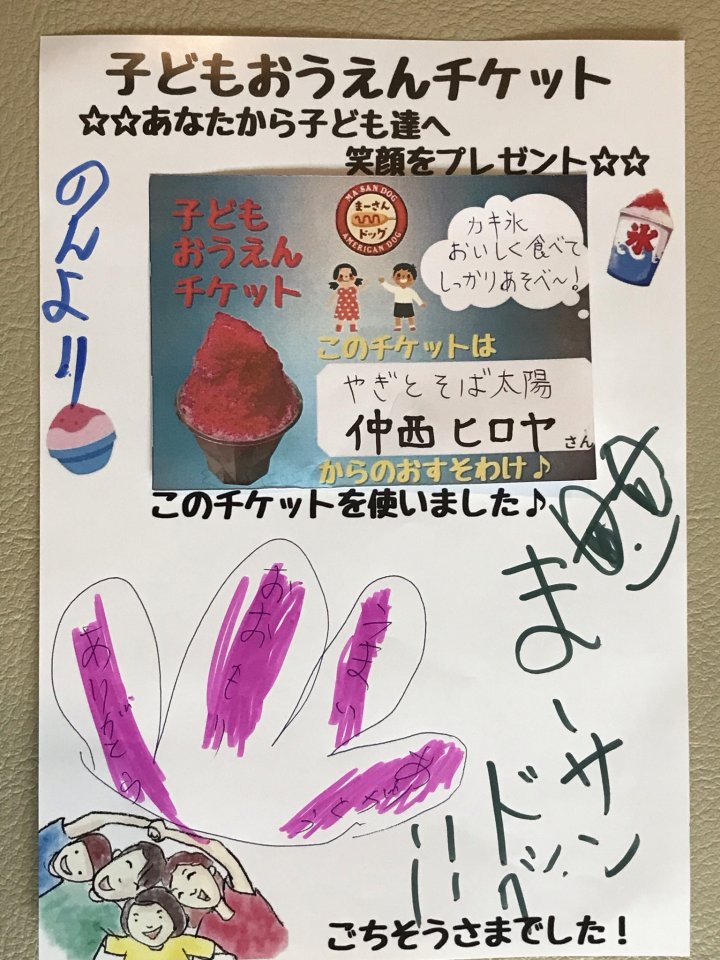 子どもおうえんチケット
☆☆あなたから子ども達へ
笑顔をプレゼント☆☆
のんより
氷
子ども
おうえん
チケット
MA SAN DOG
まーさん
ドッグ
AMERICAN DOG
カキ氷
おいしく食べて
しっかりあそべ〜!
このチケットは
やぎとそば太陽
仲西 ヒロヤ さん
からのおすそわけ♪
このチケットを使いました♪
ありがとう
おおもり
うまい
まーサン
ドッグ
ごちそうさまでした!